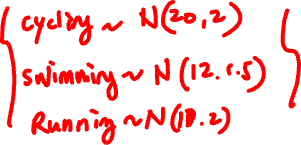 cycling ~ N(20,2)
swimming ~ N(12.1.5)
Running ~ N(10.2)